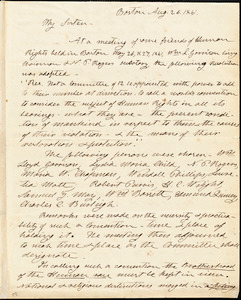 Boston Aug. 26. 1841.
My Sister.
At a meeting of some friends of Human
Rights held in Boston May 26, & 27, 1841, Wm. L. Garrison being
Chairman & N. P. Rogers Secretary, the following resolution
was adopted —
"Res. That Committee of 12 be appointed with power to add
to their number at discretion to call a world's convention
to consider the subject of Human Rights in all its
bearings – what they are – the present condition
of mankind, in respect to them – the causes
of their violation – & the means of their
restoration & protection."
The following persons were chosen – Wm.
Lloyd Garrison, Lydia Maria Child, N. P. Rogers
Maria W. Chapman, Wendell Phillips, Lucretia
Mott, Robert Purvis, H. C. Wright,
Samuel J. May, Edmund Quincy
Charles C. Burleigh.
Remarks were made on the necessity & practicability
of such a Convention, time & place of
holding it. The meeting then adjourned
to such time & place as the Committee shall
designate.
In calling such a convention the Brotherhood
of the Human race must be kept in view.
National distinctions merged in a